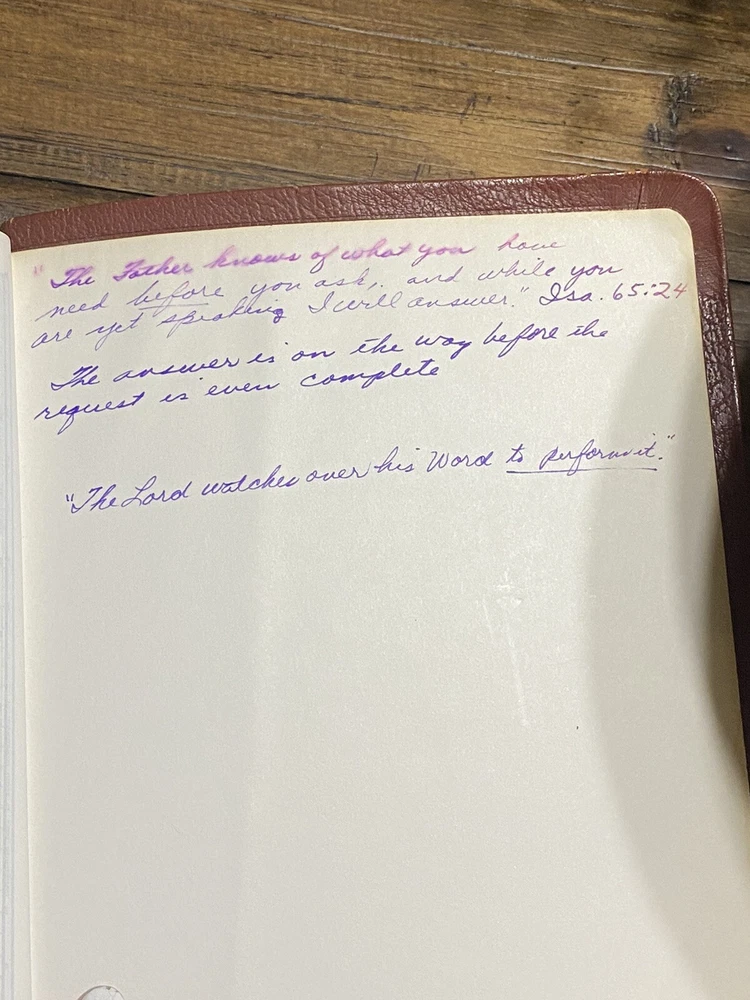 "The Father knows of what you have
need before you ask, and while you
are yet speaking I will answer." Isa. 65:24
The answer is on the way before the
request is even complete
"The Lord watches over his Word to perform it."